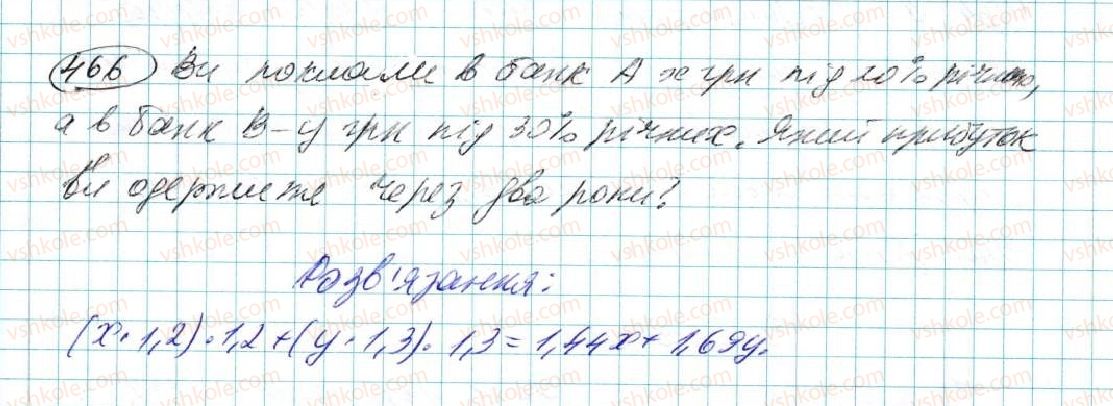 466 Ви поклали в банк А х грн під 20% річних,
а в банк В – у грн під 30% річних. Який прибуток
ви одержите через два роки?
Розв'язання:
(х · 1,2) · 1,2 + (у · 1,3) · 1,3 = 1,44х + 1,69у.